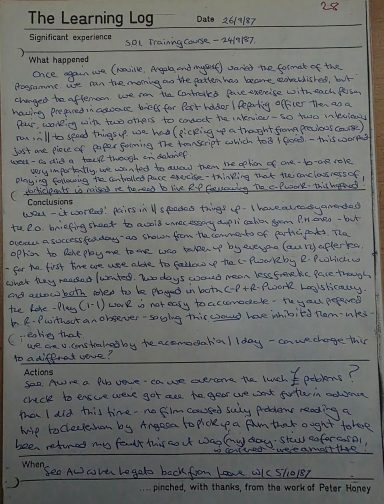 28
The Learning Log Date 26/9/87
Significant experience SDL Training Course - 24/9/87
What happened
Once again we (Neville, Angela and myself) varied the format of the
programme we ran the morning as the pattern has become established, but
changed the afternoon we ran the controlled pace exercise with each person
having prepared in advance briefs for Post holder / Reporting officer then as a
pair, working with two others to conduct the interview - so two interviews
ran in || to speed things up. we had (picking up a thought from a previous course)
just one piece of paper forming the transcript which told I found - this worked
well - as did a talk through en debrief
very importantly we wanted to allow them the option of one-to-one role
playing following the controlled pace exercise - thinking that the consciousness of
participants is raised re the need to live R-P following the c-p work - this helped
Conclusions
Well - it worked! pairs in || speeded things up - I have already amended
the P.O. briefing sheet to avoid unnecessary duplication from P.H ones - but
overall a successful day - as shown from the comments of participants. The
option to role play one to one was taken up by everyone after tea.
- for the first time we were able to follow up the c-p work by R-P which is
what they needed / wanted. Two days would mean less frenetic pace though,
and allow both roles to be played in both C-P + R-P work. Logistically
the Role-Play (1-1) work is not easy to accomodate - they all preferred
to R-P without an observer - saying this would have inhibited them - inter-
(- esting that
we are v constrained by the accomodation / 1 day - can we change this
to a different venue?
Actions
See AW re a Pub venue - can we overcome the lunch £ problems?
check to ensure we've got all the gear we want further in advance
than I did this time - no film caused silly problems needing a
trip to Cheltenham by Angela to pick up a film that ought to have
been returned my fault this as it was (my) day.
When See AW when he gets back from leave w/c 5/10/87
.... pinched, with thanks, from the work of Peter Honey